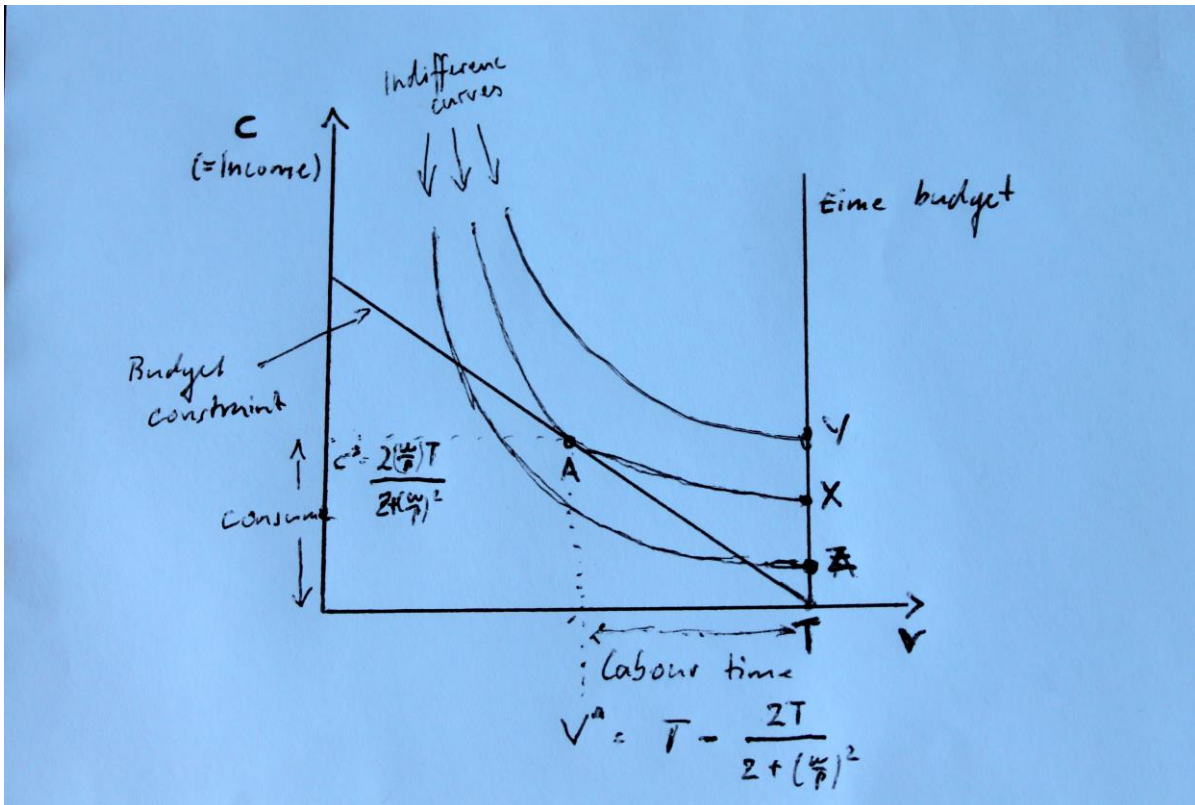 Indifferenc
curves
C
(=Income)
time budget
Budget
constraint
C* = 2(w/p)T / 2+(w/p)²
consume
A
Y
X
Z
T
V
Labour time
V* = T - 2T / 2 + (w/p)²